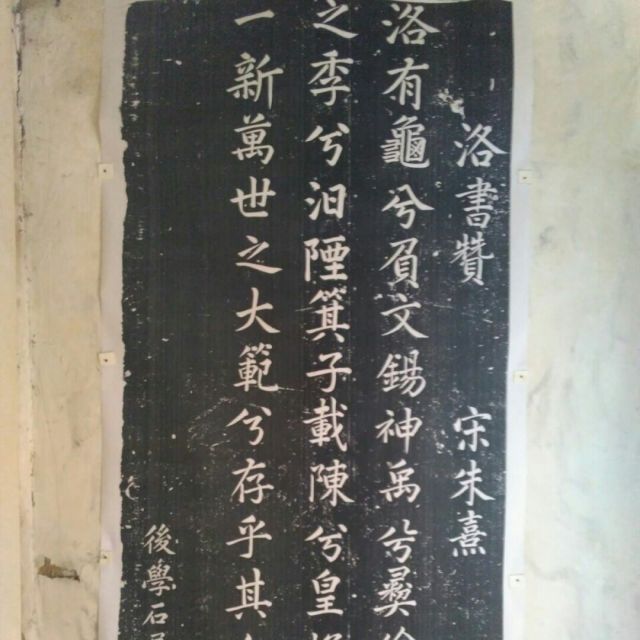 洛書贊 宋朱熹
洛有龜兮負文錫神禹兮彝
之季兮汩陻箕子載陳兮皇
一新萬世之大範兮存乎其
後學石